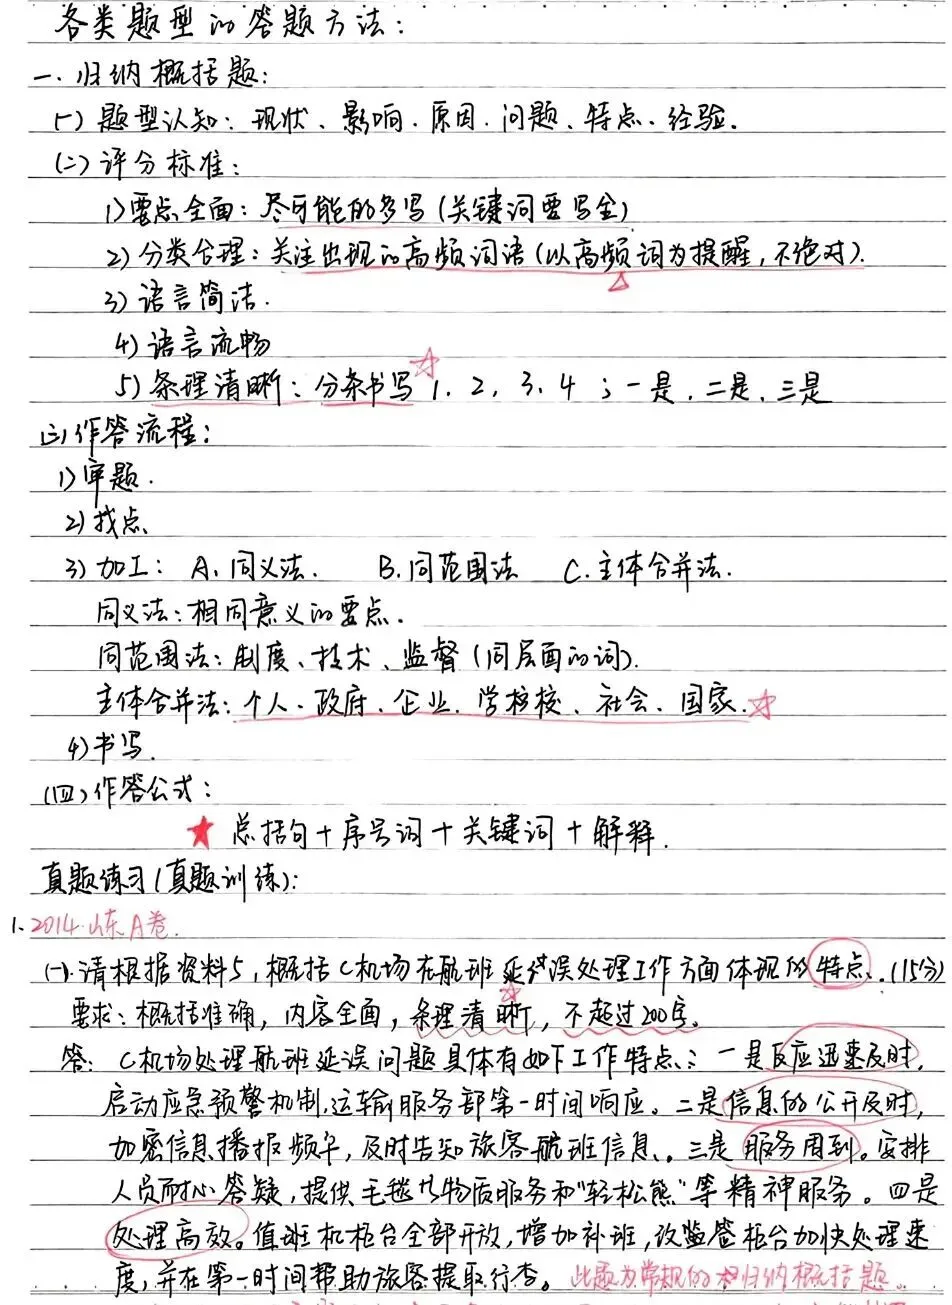 各类题型的答题方法:
一. 归纳概括题:
(一) 题型认知: 现状、影响、原因、问题、特点、经验.
(二) 评分标准:
1) 要点全面: 尽可能的多写(关键词要写全)
2) 分类合理: 关注出现的高频词语(以高频词为提醒, 不绝对).
3) 语言简洁.
4) 语言流畅
5) 条理清晰: 分条书写 1. 2, 3. 4 ; 一是, 二是, 三是
(三) 作答流程:
1) 审题.
2) 找点
3) 加工: A. 同义法. B. 同范围法 C. 主体合并法.
同义法: 相同意义的要点.
同范围法: 制度、技术、监督(同层面的词).
主体合并法: 个人、政府、企业、学校校、社会、国家.
4) 书写.
(四) 作答公式:
★ 总括句+序号词+关键词+解释.
真题练习(真题训练):
1. 2014.山东A卷.
(一). 请根据资料5, 概括C机场在航班延误处理工作方面体现的特点. (15分)
要求: 概括准确, 内容全面, 条理清晰, 不超过200字。
答: C机场处理航班延误问题具体有如下工作特点: 一是反应迅速及时,
启动应急预警机制, 运输服务部第一时间响应。二是信息的公开及时,
加密信息播报频率, 及时告知旅客航班信息。三是服务周到。安排
人员耐心答疑, 提供毛毯等物质服务和"轻松熊"等精神服务。四是
处理高效。值班机柜台全部开放, 增加补班, 改监签柜台加快处理速
度, 并在第一时间帮助旅客提取行李。此题为常规的归纳概括题。